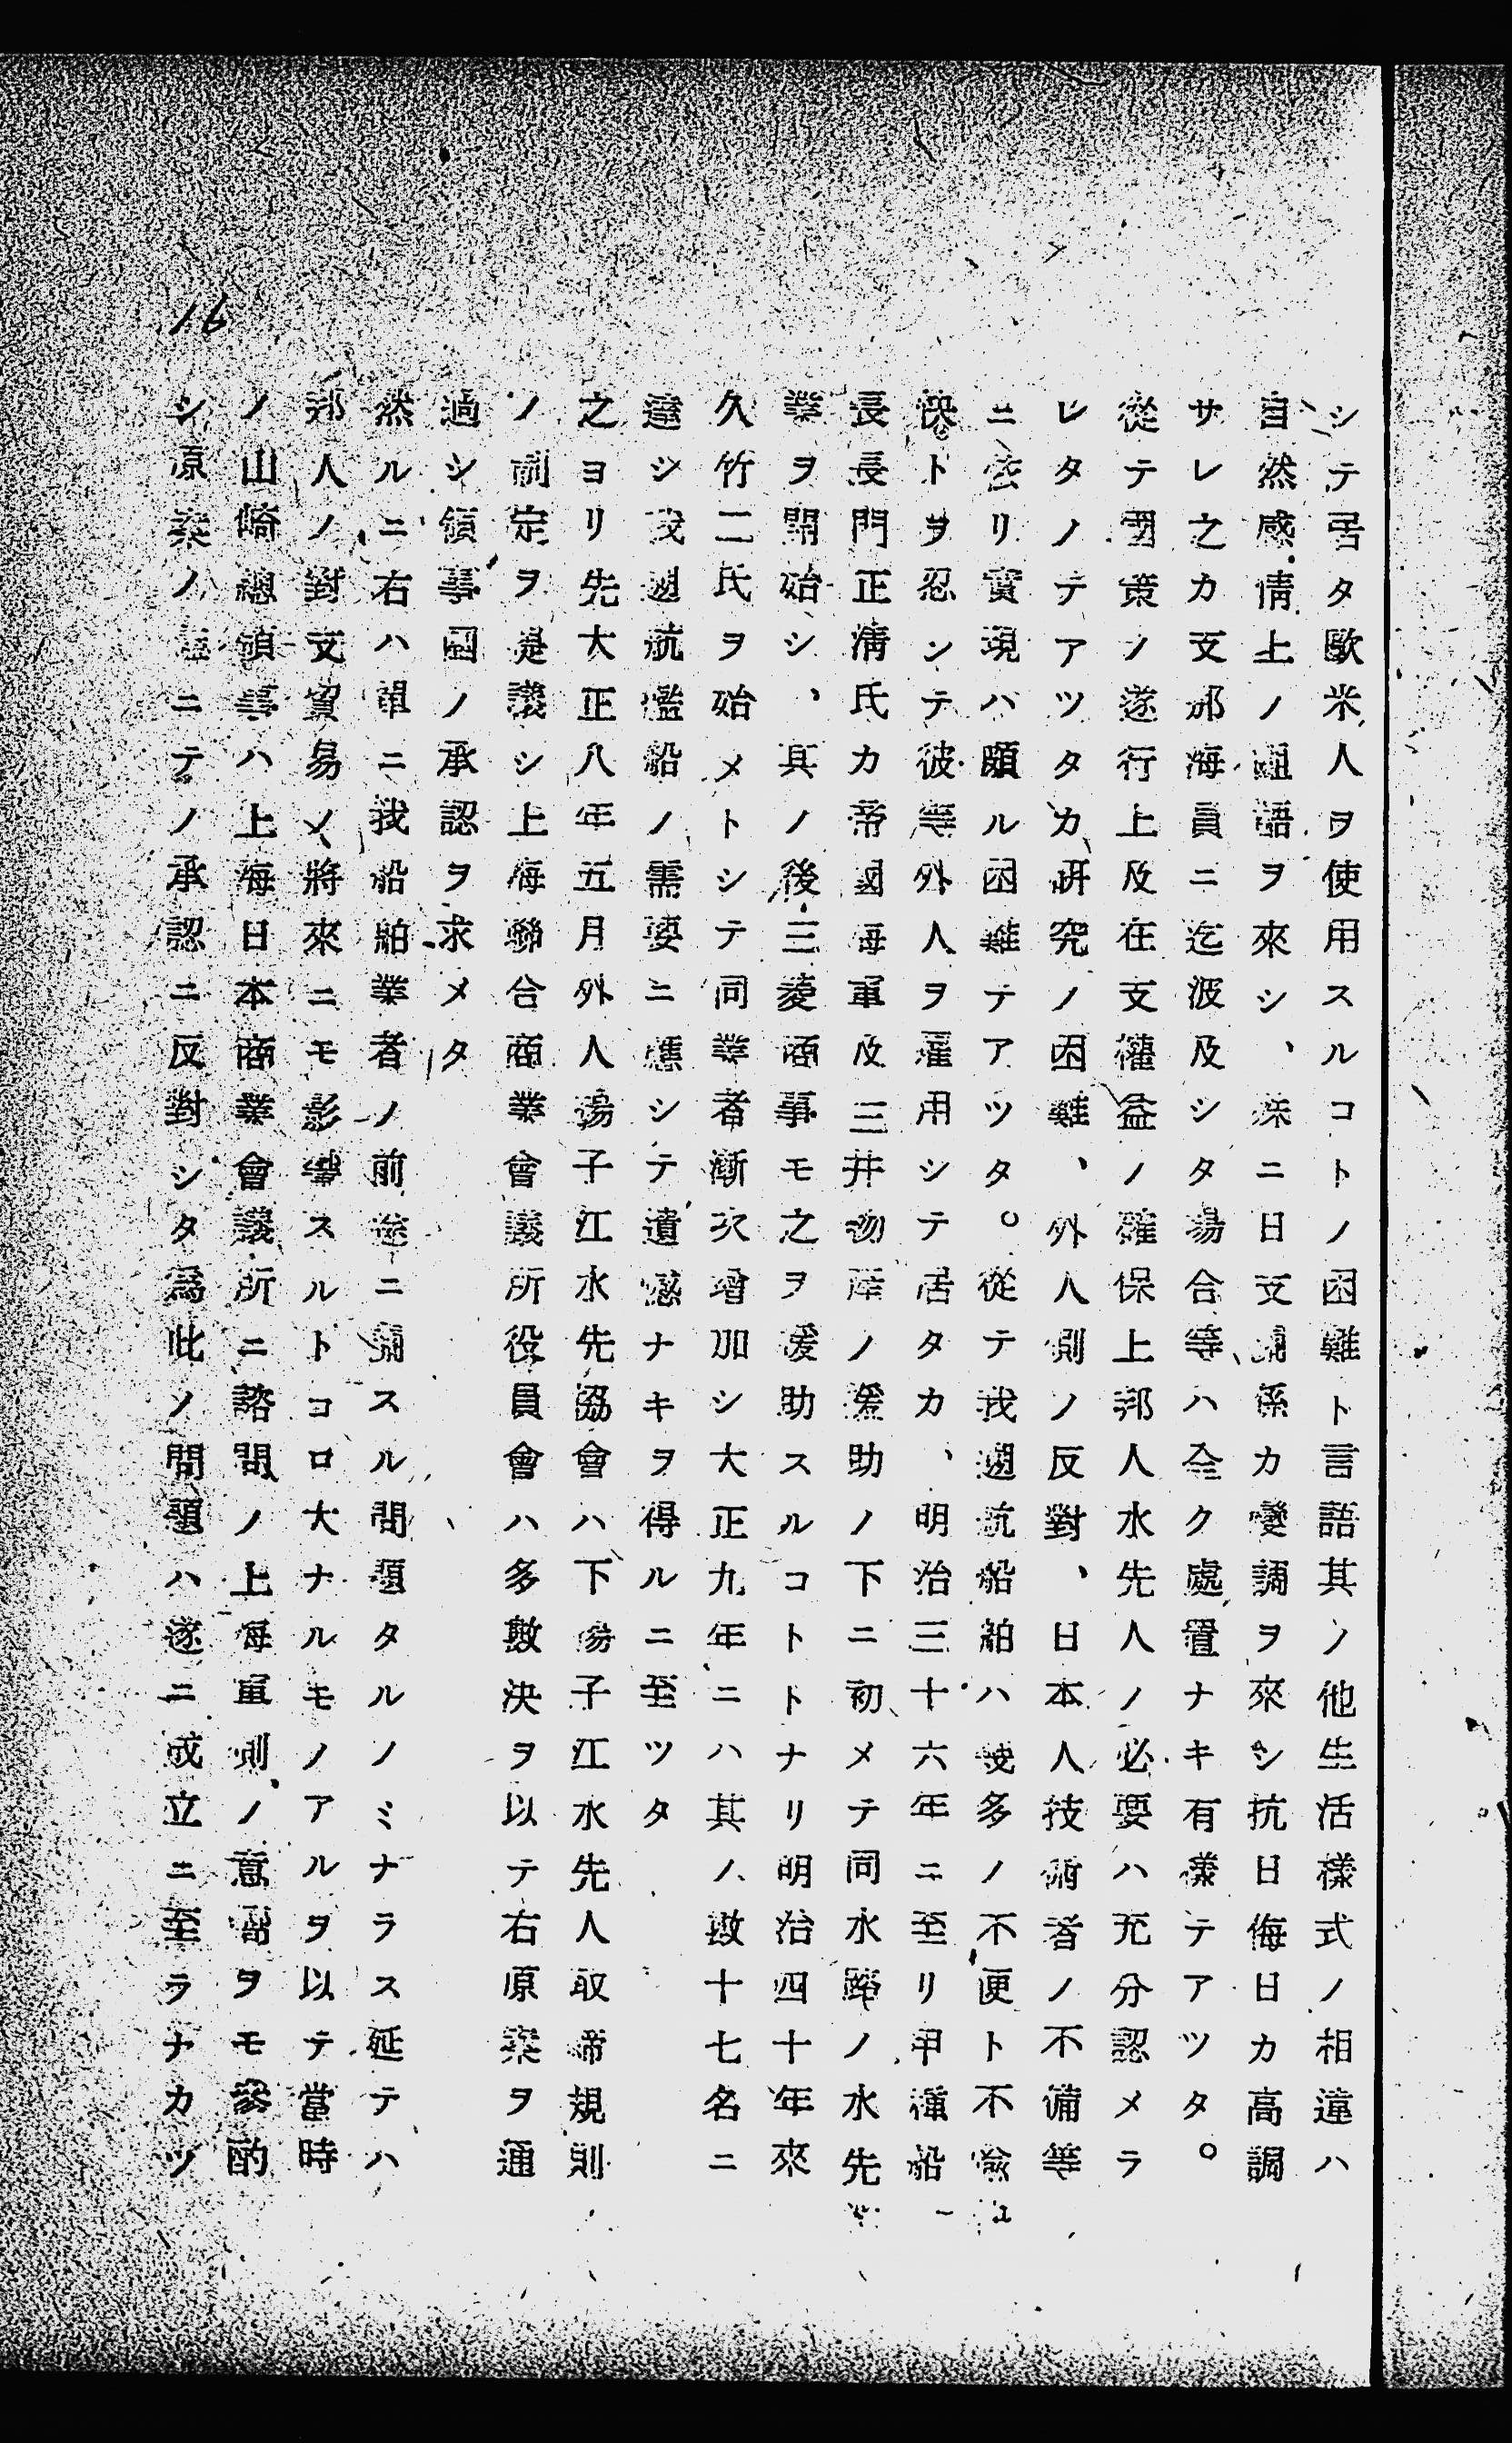 シテ居タ歐米人ヲ使用スルコトノ困難ト言語其ノ他生活樣式ノ相違ハ
自然感情上ノ齟語ヲ來シ、殊ニ日支關係カ變調ヲ來シ抗日侮日カ高調
サレ之カ支那海員ニ迄波及シタ場合等ハ全ク處置ナキ有樣テアツタ。
從テ國策ノ遂行上及在支權益ノ確保上邦人水先人ノ必要ハ充分認メラ
レタノテアツタカ研究ノ困難、外人側ノ反對、日本人技術者ノ不備等
ニ依リ實現ハ頗ル困難テアツタ。從テ我週航船舶ハ幾多ノ不便ト不愉
快トヲ忍ンテ彼等外人ヲ雇用シテ居タカ、明治三十六年ニ至リ甲種船
長長門正淸氏カ帝國海軍及三井物產ノ援助ノ下ニ初メテ同水路ノ水先
業ヲ開始シ、其ノ後三菱商事モ之ヲ援助スルコトトナリ明治四十年來
久竹二氏ヲ始メトシテ同業者漸次增加シ大正九年ニハ其ノ數十七名ニ
達シ我週航艦船ノ需要ニ應シテ遺憾ナキヲ得ルニ至ツタ
之ヨリ先大正八年五月外人揚子江水先協會ハ下揚子江水先人取締規則
ノ制定ヲ提議シ上海聯合商業會議所役員會ハ多數決ヲ以テ右原案ヲ通
過シ領事團ノ承認ヲ求メタ
然ルニ右ハ單ニ我船舶業者ノ前途ニ關スル問題タルノミナラス延テハ
邦人ノ對支貿易ノ將來ニモ影響スルトコロ大ナルモノアルヲ以テ當時
ノ山崎總領事ハ上海日本商業會議所ニ諮問ノ上海軍側ノ意嚮ヲモ參酌
シ原案ノ儘ニテノ承認ニ反對シタ爲此ノ問題ハ遂ニ成立ニ至ラナカツ
16